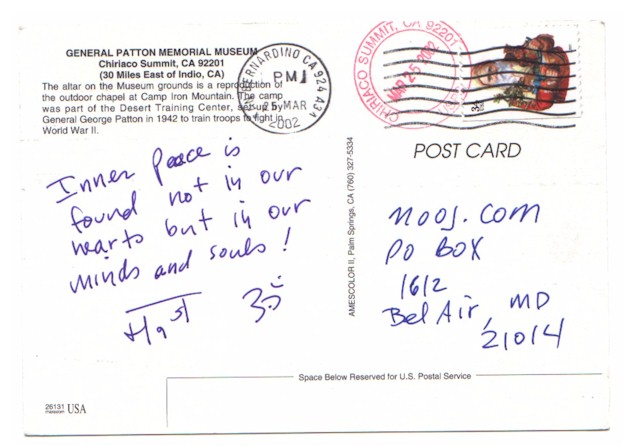 GENERAL PATTON MEMORIAL MUSEUM
Chiriaco Summit, CA 92201
(30 Miles East of Indio, CA)
The altar on the Museum grounds is a reproduction of
the outdoor chapel at Camp Iron Mountain. The camp
was part of the Desert Training Center, set up by
General George Patton in 1942 to train troops to fight in
World War II.
SAN BERNARDINO CA 924
PM
25 MAR
2002
CHIRIACO SUMMIT, CA 92201
MAR 25 2002
Inner Peace is
found not in our
hearts but in our
minds and souls!
35
AMESCOLOR II, Palm Springs, CA (760) 327-5334
POST CARD
nooj.com
PO BOX
1612
Bel Air, MD
21014
Space Below Reserved for U.S. Postal Service
26131 USA